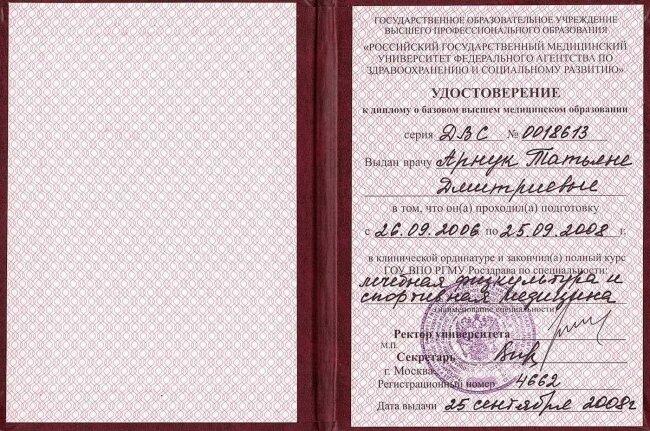 ГОСУДАРСТВЕННОЕ ОБРАЗОВАТЕЛЬНОЕ УЧРЕЖДЕНИЕ
ВЫСШЕГО ПРОФЕССИОНАЛЬНОГО ОБРАЗОВАНИЯ
«РОССИЙСКИЙ ГОСУДАРСТВЕННЫЙ МЕДИЦИНСКИЙ
УНИВЕРСИТЕТ ФЕДЕРАЛЬНОГО АГЕНТСТВА ПО
ЗДРАВООХРАНЕНИЮ И СОЦИАЛЬНОМУ РАЗВИТИЮ»
УДОСТОВЕРЕНИЕ
к диплому о базовом высшем медицинском образовании
серия ДВС № 0018613
Выдан врачу Арнук Татьяне
Дмитриевые
в том, что он(а) проходил(а) подготовку
с 26.09.2006 по 25.09.2008 г.
в клинической ординатуре и закончил(а) полный курс
ГОУ ВПО РГМУ Росздрава по специальности:
лечебная физкультура и
спортивная медицина
(наименование специальности)
Ректор университета
М.П.
Секретарь
г. Москва
Регистрационный номер 4662
Дата выдачи 25 сентября 2008г